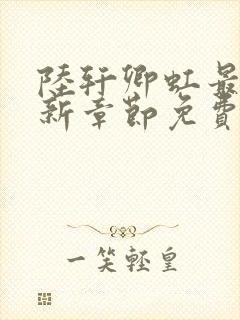 陸軒卿虹最
新章節免費
一笑輕皇